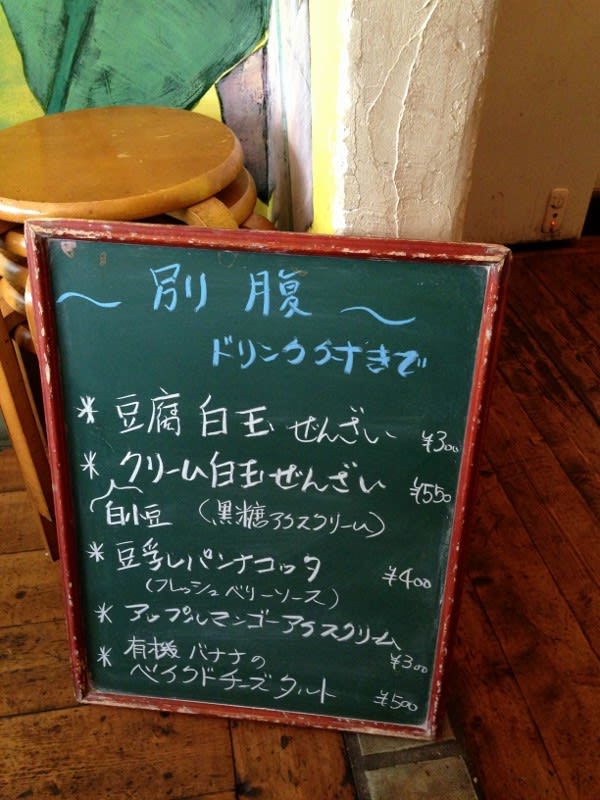 ～ 別腹 ～
ドリンク付すきで
* 豆腐白玉ぜんざい ¥300
* クリーム白玉ぜんざい ¥550
白小豆 (黒糖アイスクリーム)
* 豆乳レパンナコッタ ¥400
(フレッシュベリーソース)
* アップルマンゴーアイスクリーム ¥300
* 有機バナナの
ベイクドチーズタルト ¥500